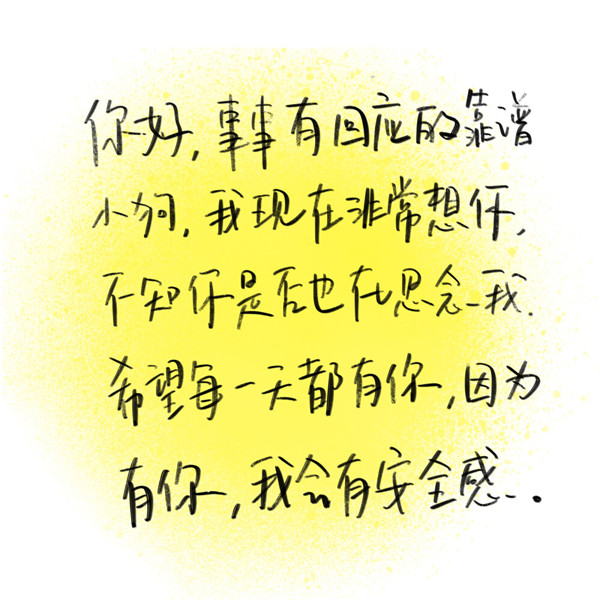 你好,事事有回应的靠谱
小狗,我现在非常想你,
不知你是否也在思念我.
希望每一天都有你,因为
有你,我会有安全感..